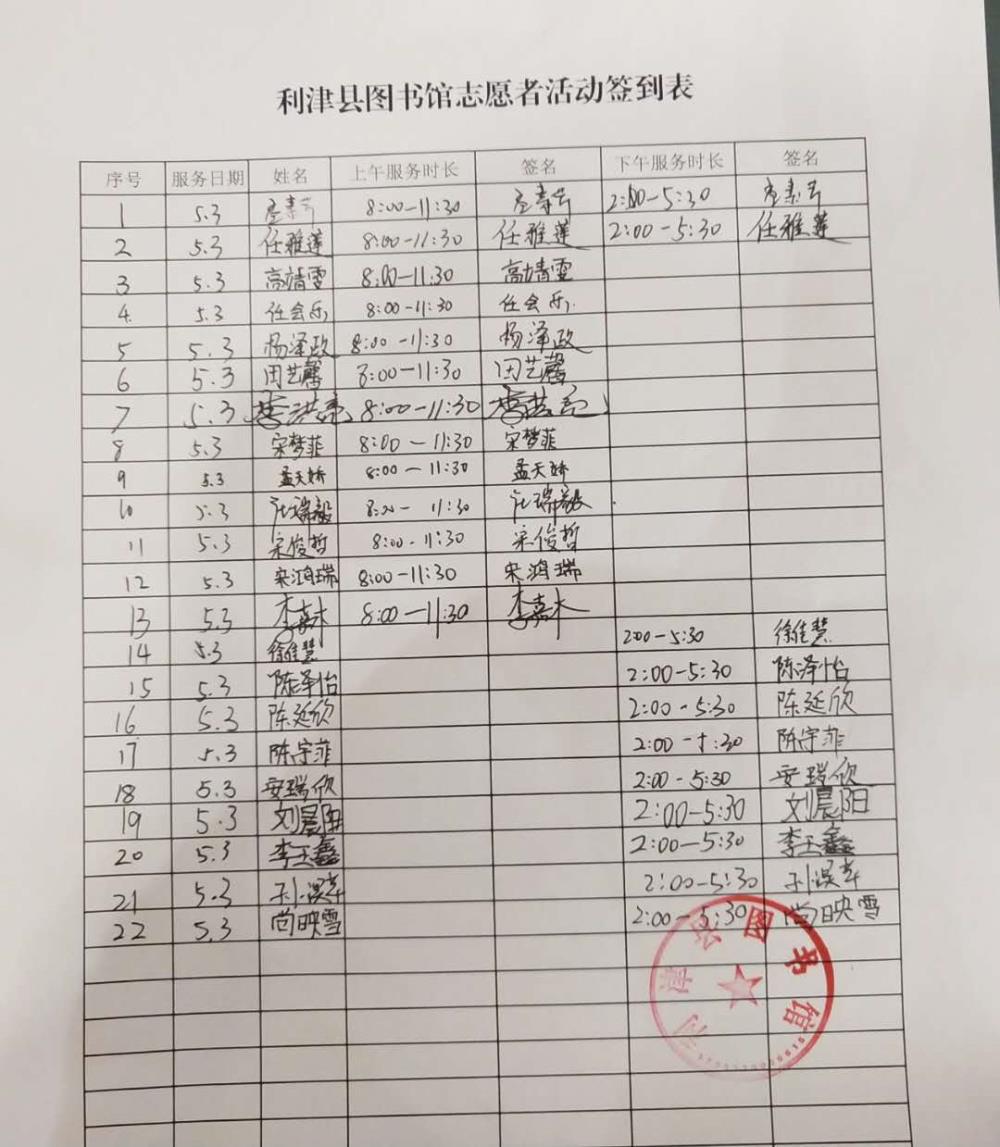 利津县图书馆志愿者活动签到表
序号 服务日期 姓名 上午服务时长 签名 下午服务时长 签名
1 5.3 8:00-11:30 2:00-5:30
2 5.3 任雅莲 8:00-11:30 任雅莲 2:00-5:30 任雅莲
3 5.3 高婧雯 8:00-11:30 高婧雯
4 5.3 任会乐 8:00-11:30 任会乐
5 5.3 杨泽政 8:00-11:30 杨泽政
6 5.3 田艺馨 8:00-11:30 田艺馨
7 5.3 李洪亮 8:00-11:30 李洪亮
8 5.3 宋梦菲 8:00-11:30 宋梦菲
9 5.3 孟天娇 8:00-11:30 孟天娇
10 5.3 瑞毅 8:00-11:30 瑞毅
11 5.3 宋俊哲 8:00-11:30 宋俊哲
12 5.3 宋鸿瑞 8:00-11:30 宋鸿瑞
13 5.3 李嘉木 8:00-11:30 李嘉木
14 5.3 徐佳慧 2:00-5:30 徐佳慧
15 5.3 陈泽怡 2:00-5:30 陈泽怡
16 5.3 陈延欣 2:00-5:30 陈延欣
17 5.3 陈宇菲 2:00-5:30 陈宇菲
18 5.3 安瑞欣 2:00-5:30 安瑞欣
19 5.3 刘晨阳 2:00-5:30 刘晨阳
20 5.3 李玉鑫 2:00-5:30 李玉鑫
21 5.3 2:00-5:30
22 5.3 尚映雪 2:00-5:30 尚映雪
利津县图书馆